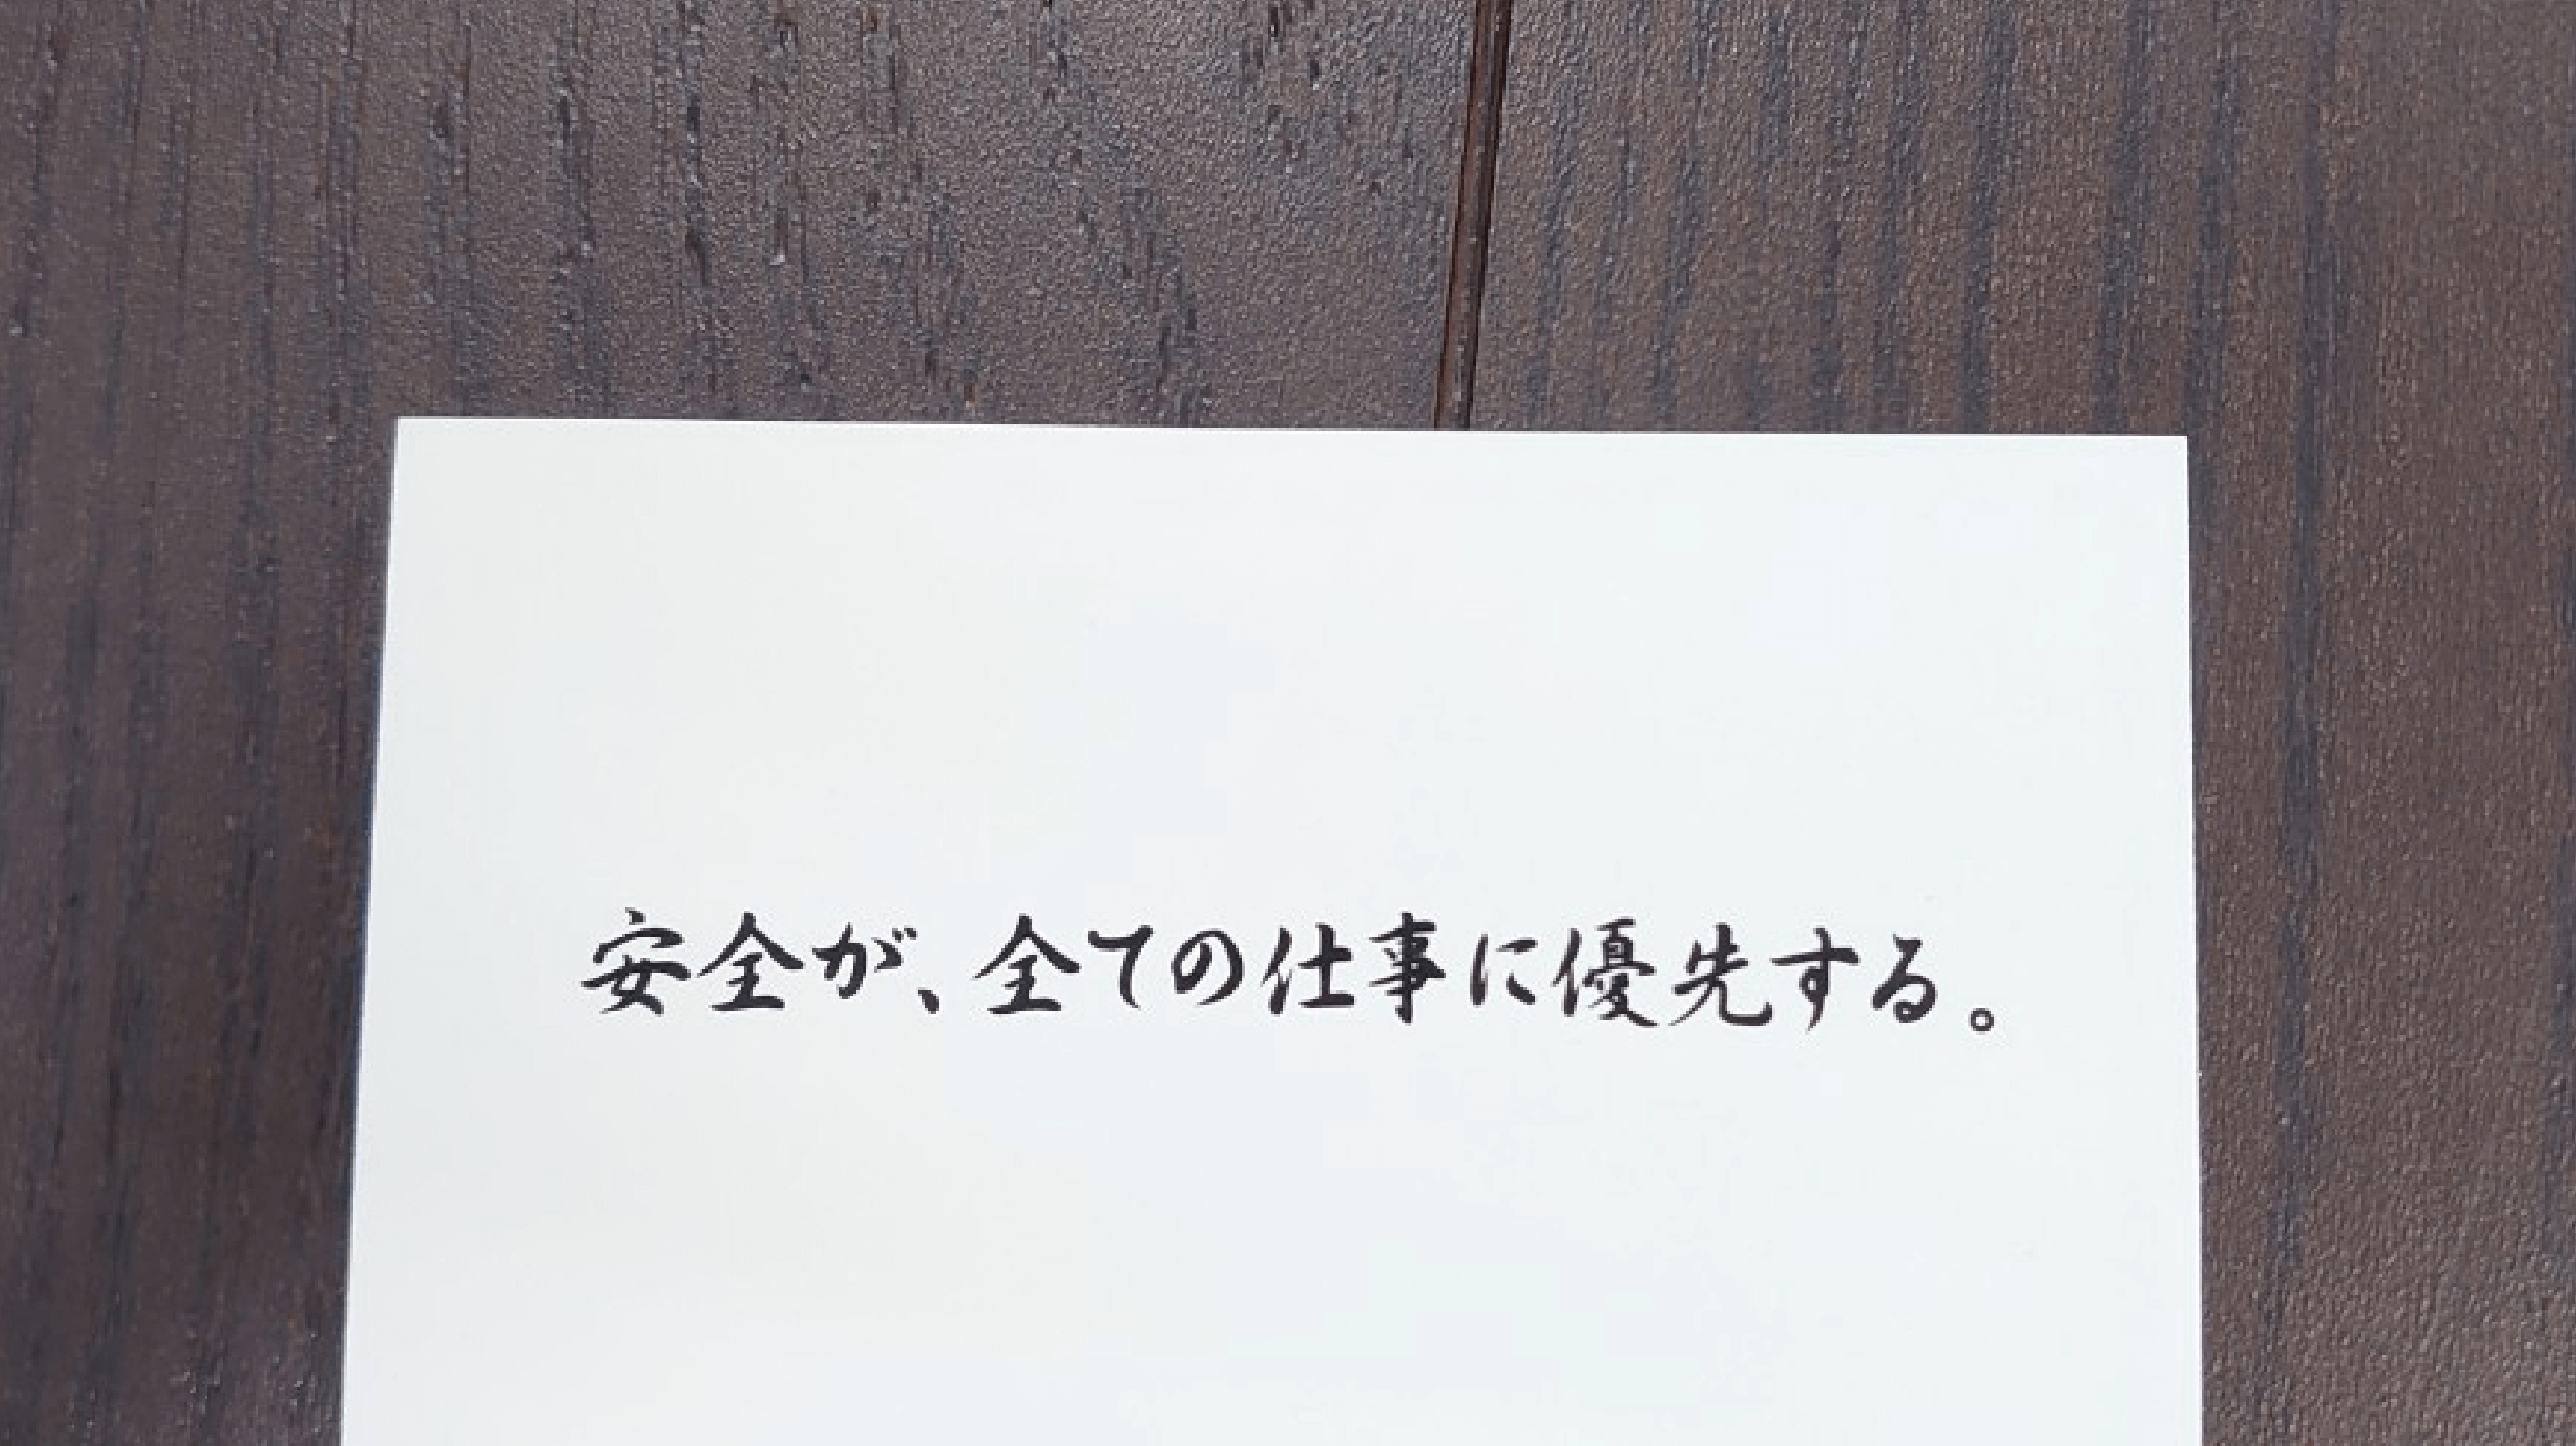 安全が、全ての仕事に優先する。